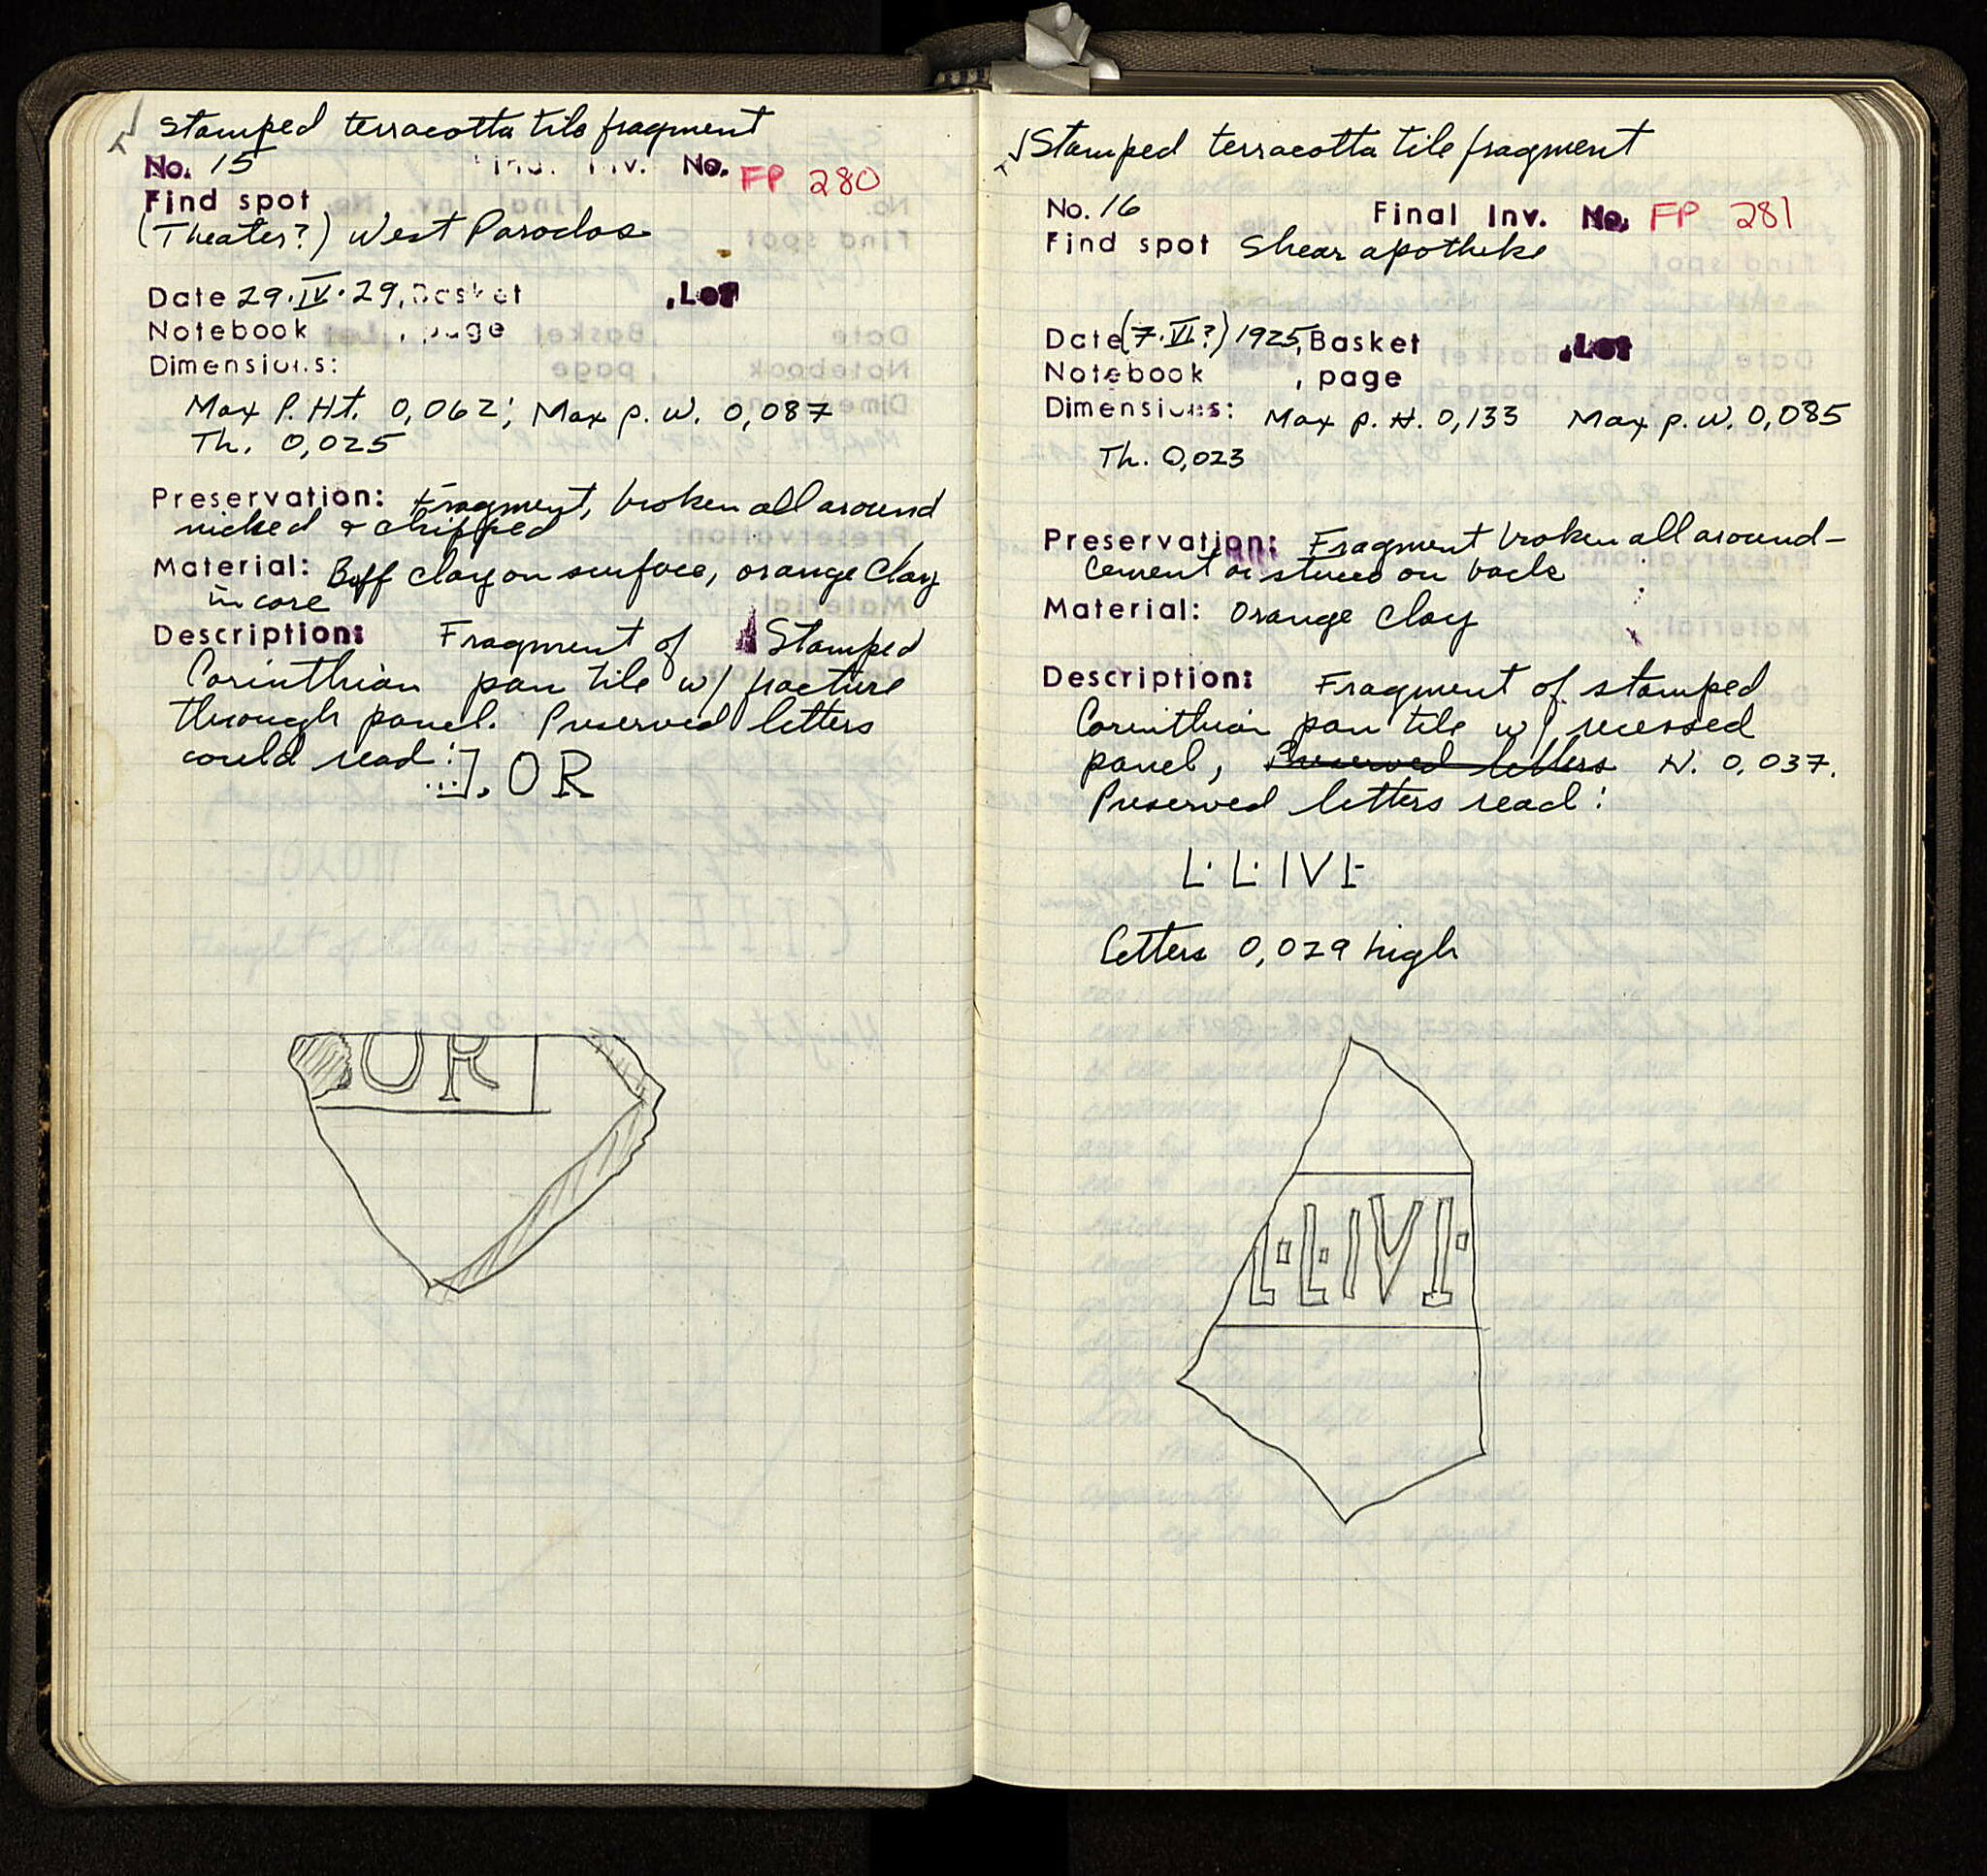 Stamped terracotta tile fragment
No. 15 Final Inv. No. FP 280
Find spot
(Theater?) West Parodos
Date 29·IV·29, Basket , Lot
Notebook , page
Dimensions:
Max P. Ht. 0,062; Max p. w. 0,087
Th. 0,025
Preservation: Fragment, broken all around
nicked & chipped
Material: Buff clay on surface, orange clay
in core
Description: Fragment of Stamped
Corinthian pan tile w/ fracture
through panel. Preserved letters
could read:
...]. OR
OR
Stamped terracotta tile fragment
No. 16 Final Inv. No. FP 281
Find spot Shear apotheke
Date (7·VI?) 1925, Basket , Lot
Notebook , page
Dimensions: Max p. H. 0,133 Max p. w. 0,085
Th. 0,023
Preservation: Fragment broken all around –
cement or stucco on back
Material: Orange clay
Description: Fragment of stamped
Corinthian pan tile w/ recessed
panel, Preserved letters H. 0,037.
Preserved letters read:
L·L·IVI·
Letters 0,029 high
L·L·IVI·